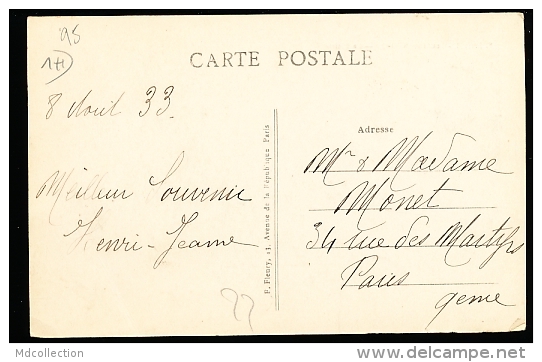 95
CARTE POSTALE
8 Avril 33.
Adresse
Mr & Madame
Monet
Meilleur Souvenir
34 rue des Martyrs
Henri-Jeanne
Paris
9eme
F. Fleury, 41, Avenue de la République Paris
Mdcollection
www.delcampe.net